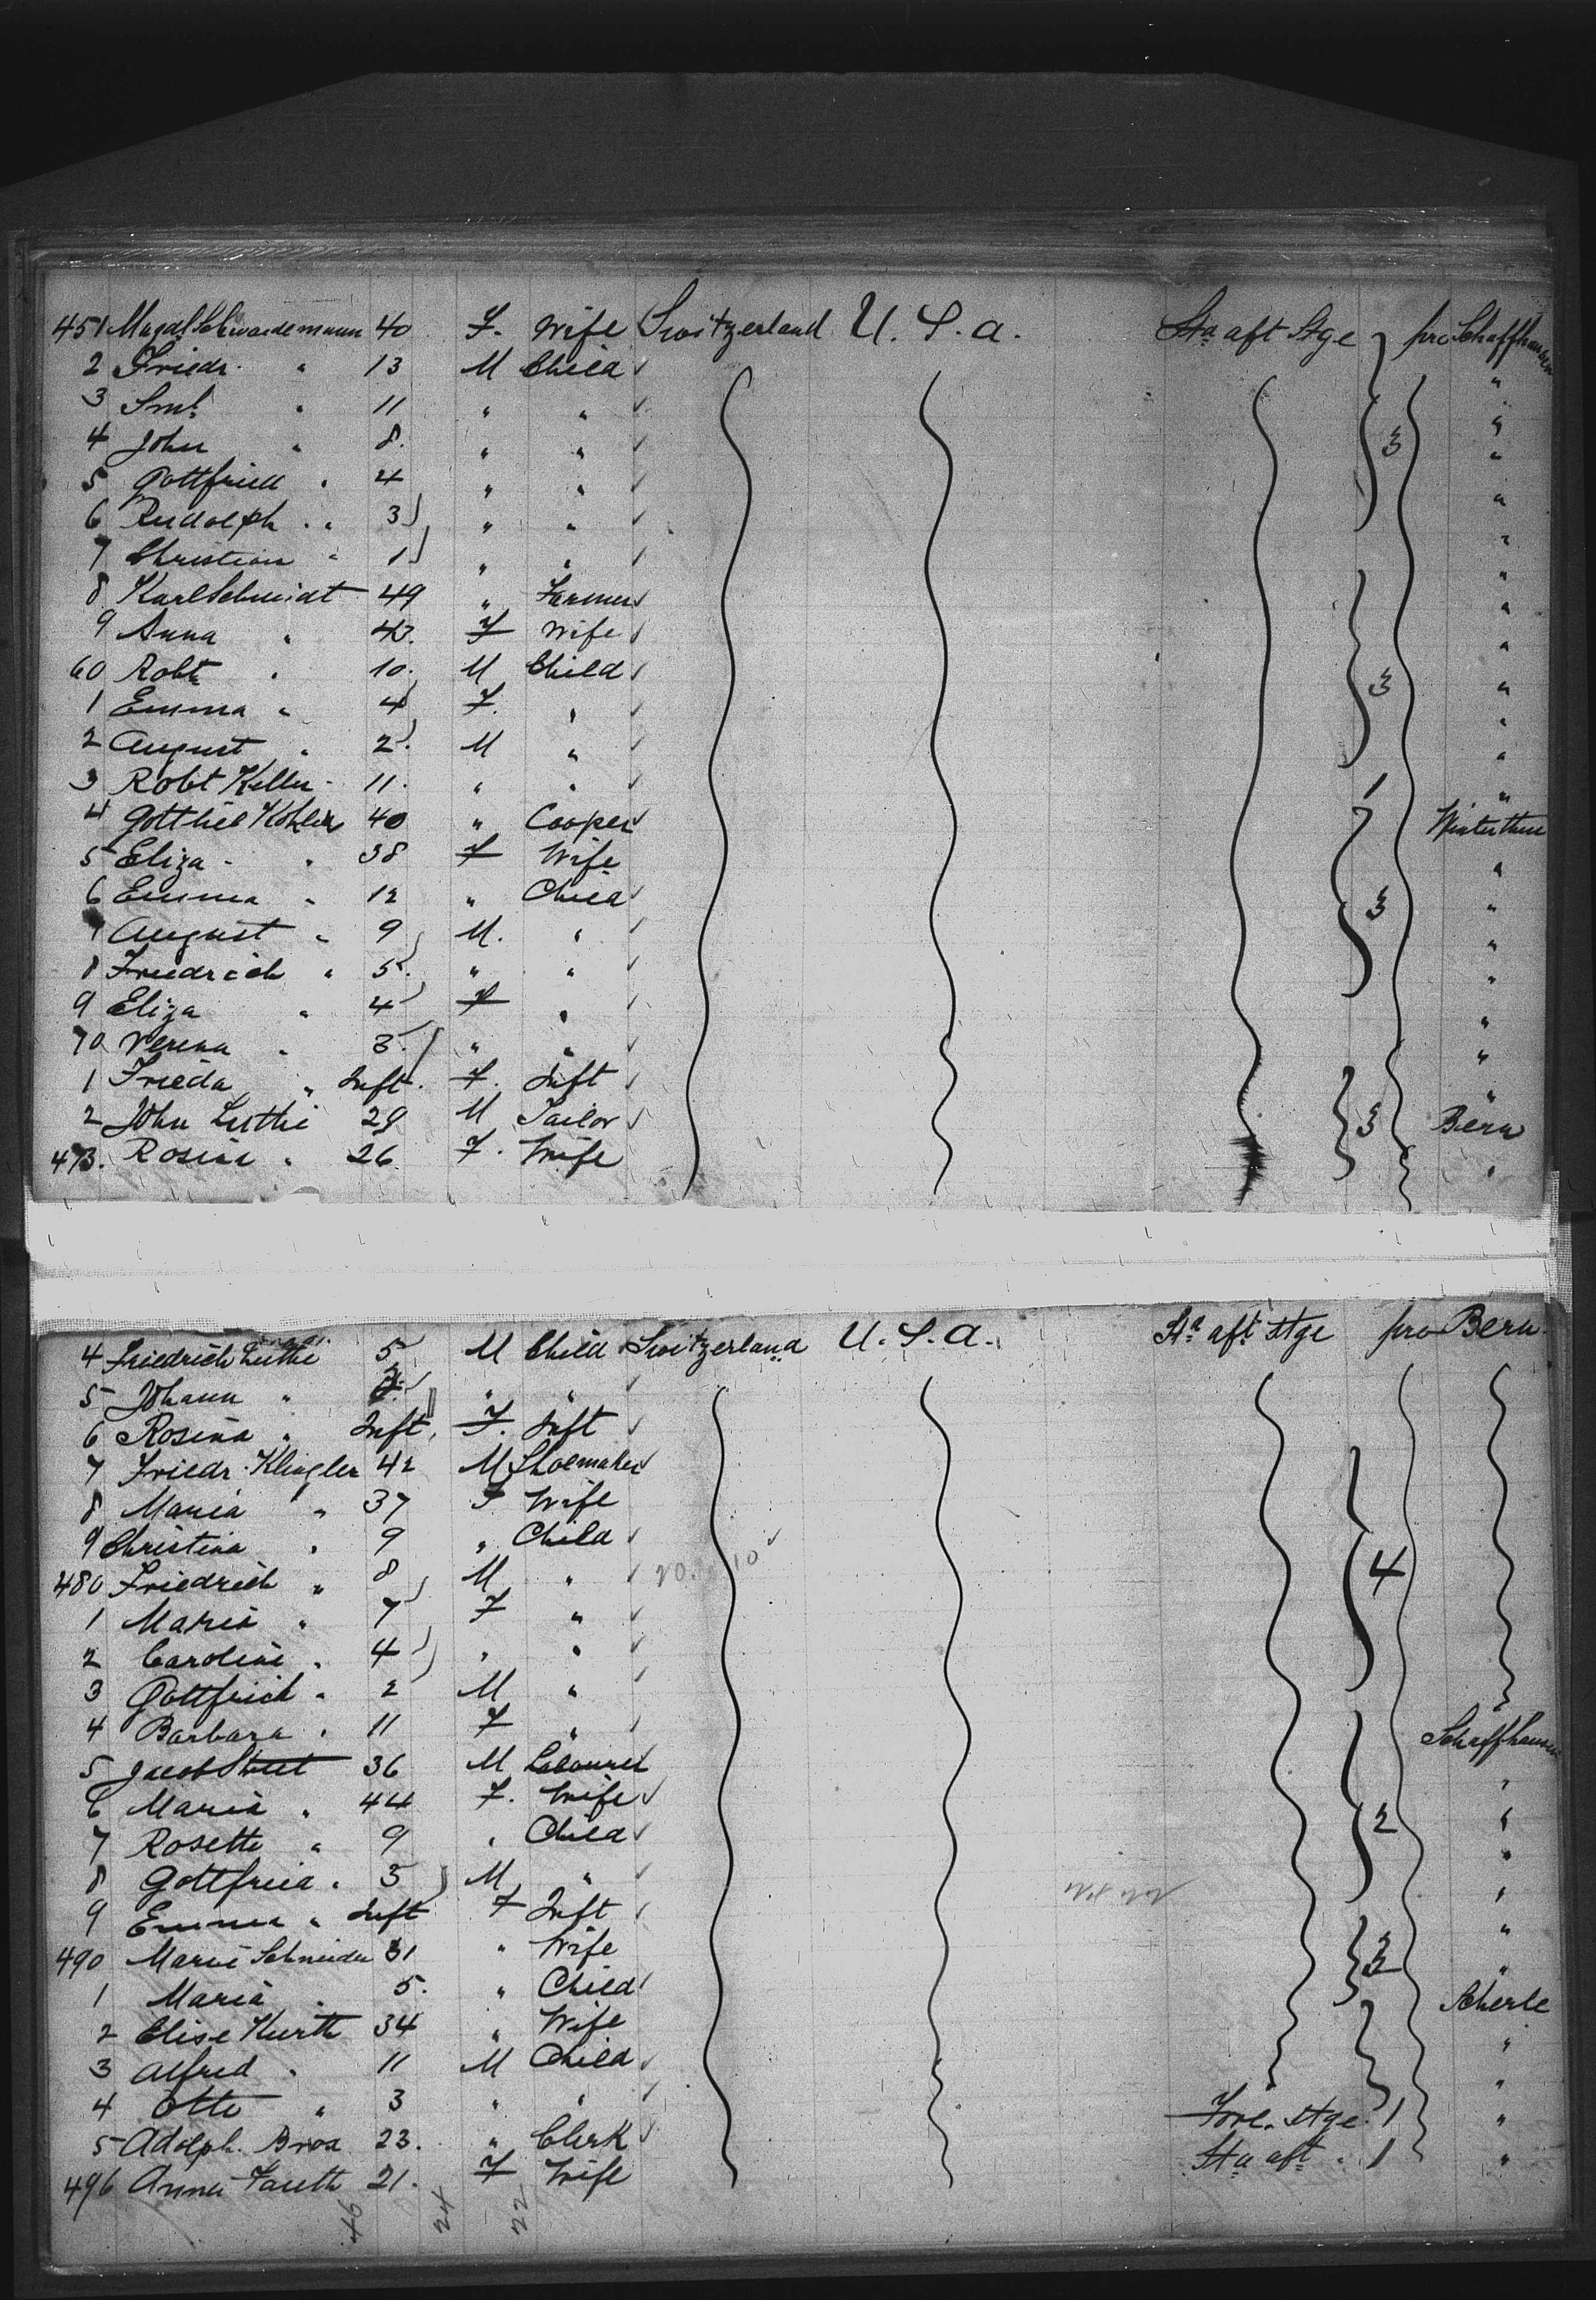 451 Magdl Schwardemann 40 F. Wife Switzerland U. S. a. Sta aft Stge pro Schaffhausen
2 Friedr. " 13 M Child "
3 " 11 " " "
4 John " 8. " " 3 "
5 Gottfried " 4 " " "
6 Rudolph " 3 " " "
7 Christian " 1 " " "
8 Karl Schmidt 49 " Farmer "
9 Anna " 43. F Wife "
60 Robt " 10. M Child "
1 Emma " 4 F. " 3 "
2 August " 2. M " "
3 Robt Keller 11. " " 1 "
4 Gottlieb Kohler 40 " Cooper Winterthur
5 Eliza " 38 F Wife "
6 Emma " 12 " Child 3 "
7 August " 9 M. " "
8 Friedrich " 5. " " "
9 Eliza " 4 F " "
70 Verena " 3. " " "
1 Frieda " Inft. F. Inft "
2 John Luthi 29 M Tailor 3 Bern
473. Rosina " 26. F. Wife "
4 Friedrich Luthi 5 M Child Switzerland U. S. a. Sta aft Stge pro Bern
5 Johann " " "
6 Rosina " Inft. F. Inft
7 Friedr. Klingler 42 M Shoemaker
8 Maria " 37 F Wife
9 Christina " 9 " Child
480 Friedrich " 8 M " 4
1 Maria " 7 F "
2 Carolini " 4 " "
3 Gottfried " 2 M "
4 Barbara " 11 F " Schaffhausen
5 Jacob 36 M Labourer "
6 Maria " 44 F. Wife "
7 Rosette " 9 " Child 2 "
8 Gottfried " 3 M " "
9 Emma " Inft F Inft "
490 Marie Schneider 31 " Wife "
1 Maria " 5. " Child Scherle
2 Elise Kurth 34 " Wife "
3 Alfred " 11 M Child "
4 Otto " 3 " " Forl. Stge. 1 "
5 Adolph. Bros 23. " Clerk Sta aft " 1 "
496 Anna Fauth 21. F Wife
46 24 22